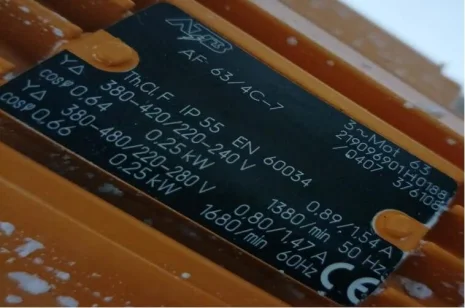 AF 63/4C-7
3~Mot. 63
219096901H0188
/0407 376108
Th.Cl.F IP 55 EN 60034
YΔ 380-420/220-240 V 0.89/1.54 A
cosφ 0.64 0.25 kW 1380/min 50 Hz
YΔ 380-480/220-280 V 0.80/1.47 A
cosφ 0.66 0.25 kW 1680/min 60Hz
CE